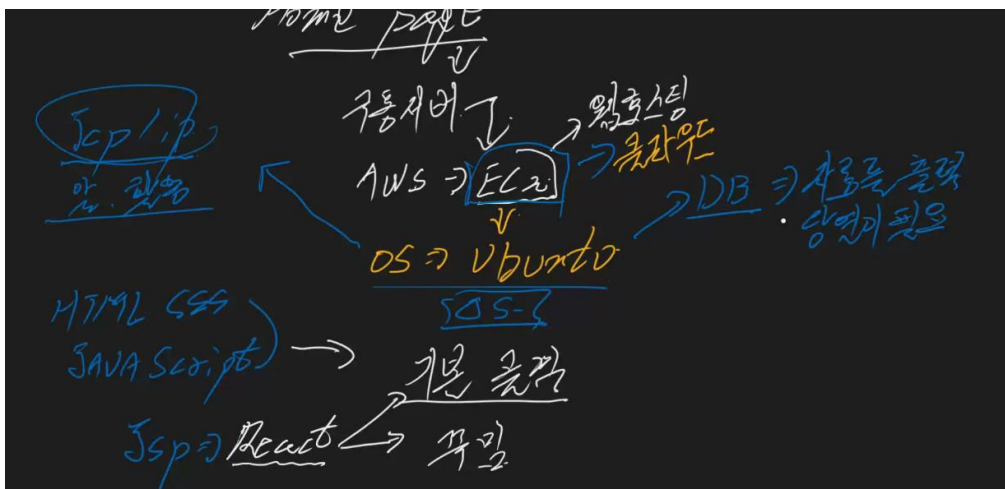 Home page
구동서버
웹호스팅
AWS ⇒ EC2 → 클라우드
Tcp/ip
DB ⇒ 자료를 출력
당연히 필요
OS ⇒ Ubuntu
{OS}
HTML CSS
JAVA Script → 기본 클릭
Jsp ⇒ React → 꾸밈